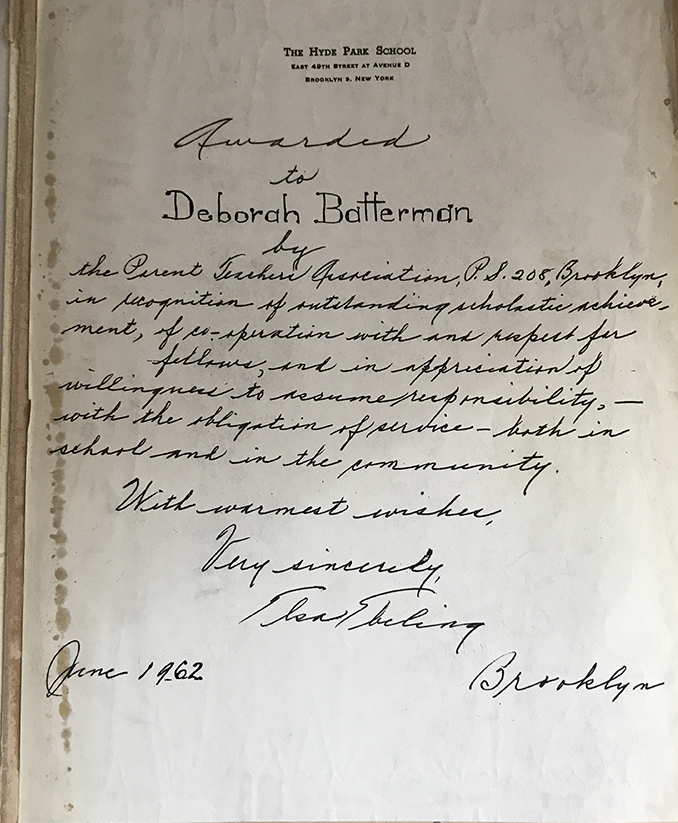 The Hyde Park School
East 49th Street at Avenue D
Brooklyn 3, New York
Awarded
to
Deborah Batterman
by
the Parent Teachers Association, P.S. 208, Brooklyn,
in recognition of outstanding scholastic achieve-
ment, of co-operation with and respect for
fellows, and in appreciation of
willingness to assume responsibility, —
with the obligation of service — both in
school and in the community.
With warmest wishes,
Very sincerely,
Elsa Ebeling
June 1962
Brooklyn